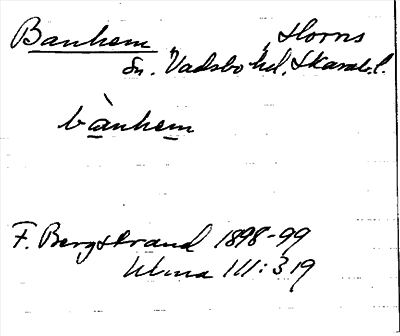 Banhem, Horns
sn. Vadsbo hd. Skarab. l.
bànhem
F. Bergstrand 1898-99
Ulma 111:319